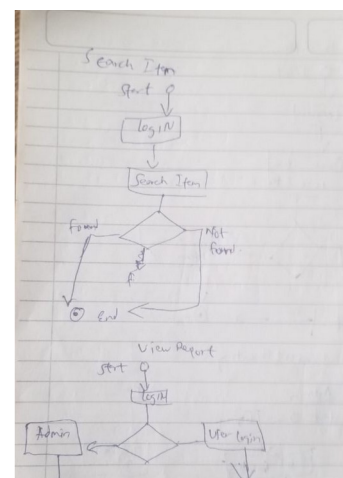 Search Item
Start
logIN
Search Item
Found
Not
found
End
View Report
start
logIN
Admin
User login